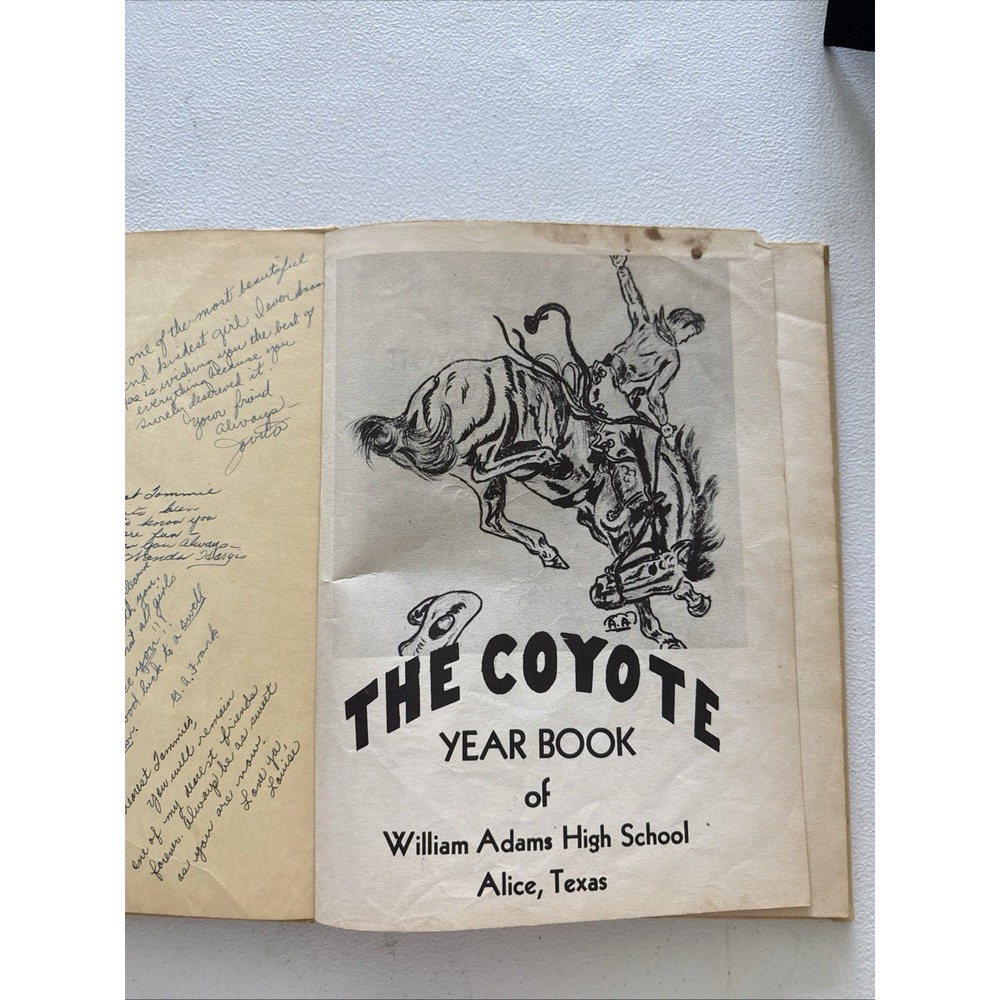 one of the most beautiful
and kindest girl I ever know
is wishing you the best of
everything because you
surely deserved it.
Your friend
always—
Jovita
Tommie
know you
fun—
you always—
Wanda
you.
all girls
you!!
luck to a swell
G. A. Frank
Tommie,
You will remain
one of my dearest friends
forever. Always be as sweet
as you are now.
Love ya,
Louise
A.A
THE COYOTE
YEAR BOOK
of
William Adams High School
Alice, Texas